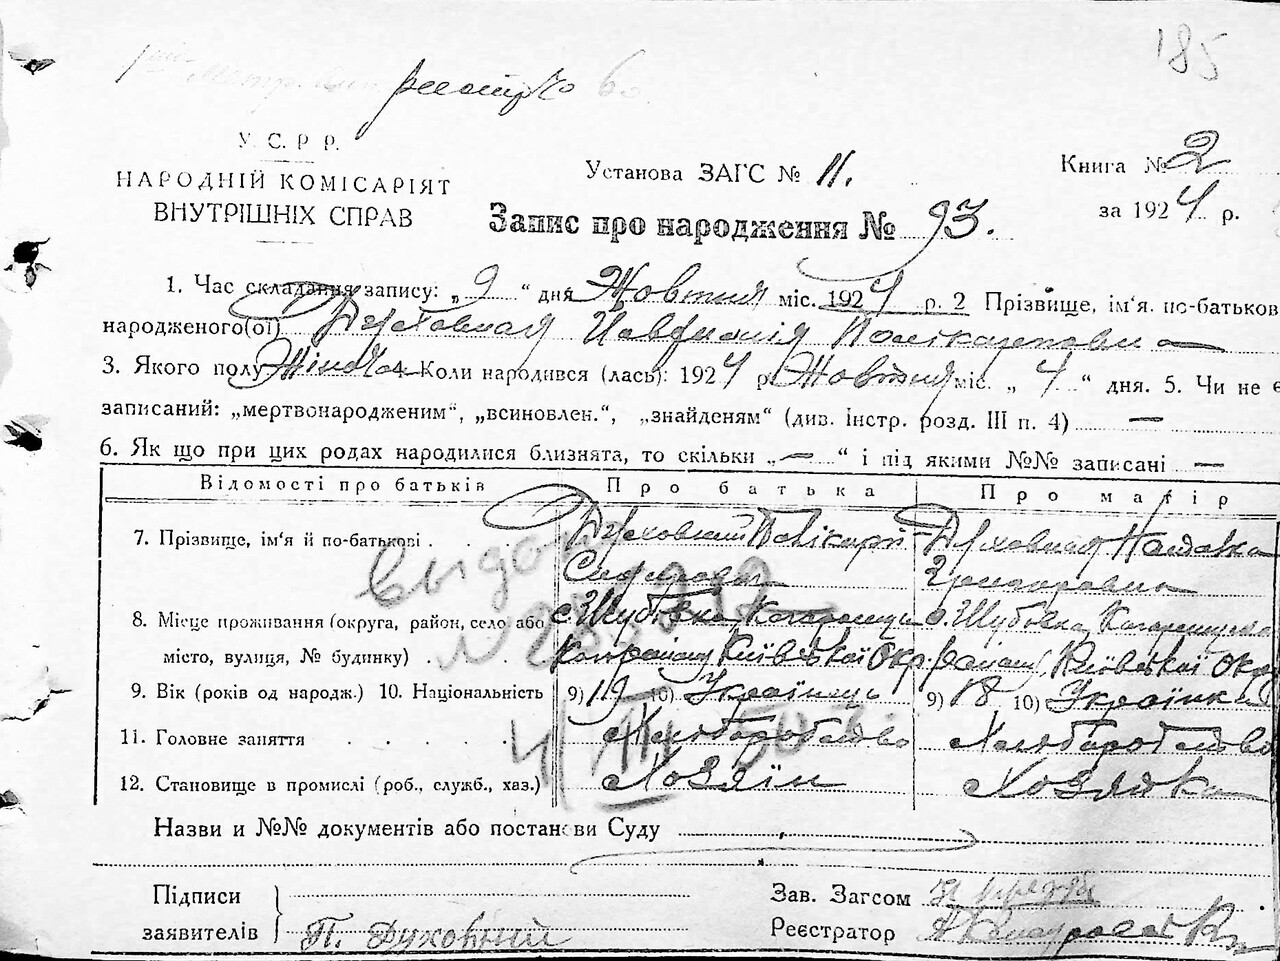 185
У. С. Р Р.
НАРОДНІЙ КОМІСАРІЯТ
ВНУТРІШНІХ СПРАВ
Установа ЗАГС № 11.
Книга № 2
за 1924 р.
Запис про народження № 93.
1. Час складання запису: „ 9 “ дня Жовтня міс. 1924 р. 2 Прізвище, ім‘я. по-батьков
народженого(ої) Духовная Полікарповна
3. Якого полу Жіноч. 4. Коли народився (лась): 1924 р. Жовтня міс. „ 4 “ дня. 5. Чи не є
записаний: „мертвонародженим“, „всиновлен.“, „знайденям“ (див. інстр. розд. III п. 4) —
6. Як що при цих родах народилися близнята, то скільки „ — “ і під якими №№ записані —
Відомості про батьків Про батька Про матір
7. Прізвище, ім‘я й по-батькові . . . Духовний Полікарп Духовная
8. Місце проживання (округа, район, село або с. Шубовка с. Шубовка
місто, вулиця, № будинку) . . району Київської Окр району, Київської Окр
9. Вік (років од народж.) 10. Національність 9) 19 10) Українець 9) 18 10) Українка
11. Головне заняття . . . . . Хлеборобство Хлеборобство
12. Становище в промислі (роб., служб., хаз.) Хозяїн Хозяйка
Видан
Назви и №№ документів або постанови Суду
Підписи
заявителів П. Духовний
Зав. Загсом
Реєстратор